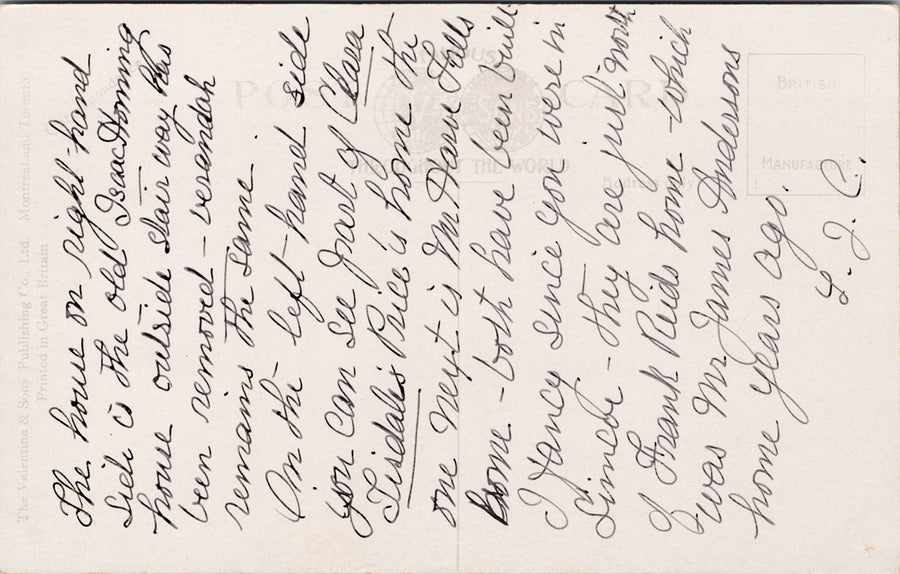 The house on right-hand
side is the old Isaac Horning
house outside stair way has
been removed - verandah
remains the same.
On the left-hand side
you can see part of Clara
Tisdale's Price's home the
one next is Mr Howe Falls
home - both have been built
I fancy since you were in
Simcoe - they are just north
of Frank Reids home - which
was Mr James Andersons
home years ago.
L. J. C.
POST CARD
THROUGHOUT THE WORLD
BRITISH
MANUFACTURE
The Valentine & Sons Publishing Co., Ltd. Montreal and Toronto
Printed in Great Britain